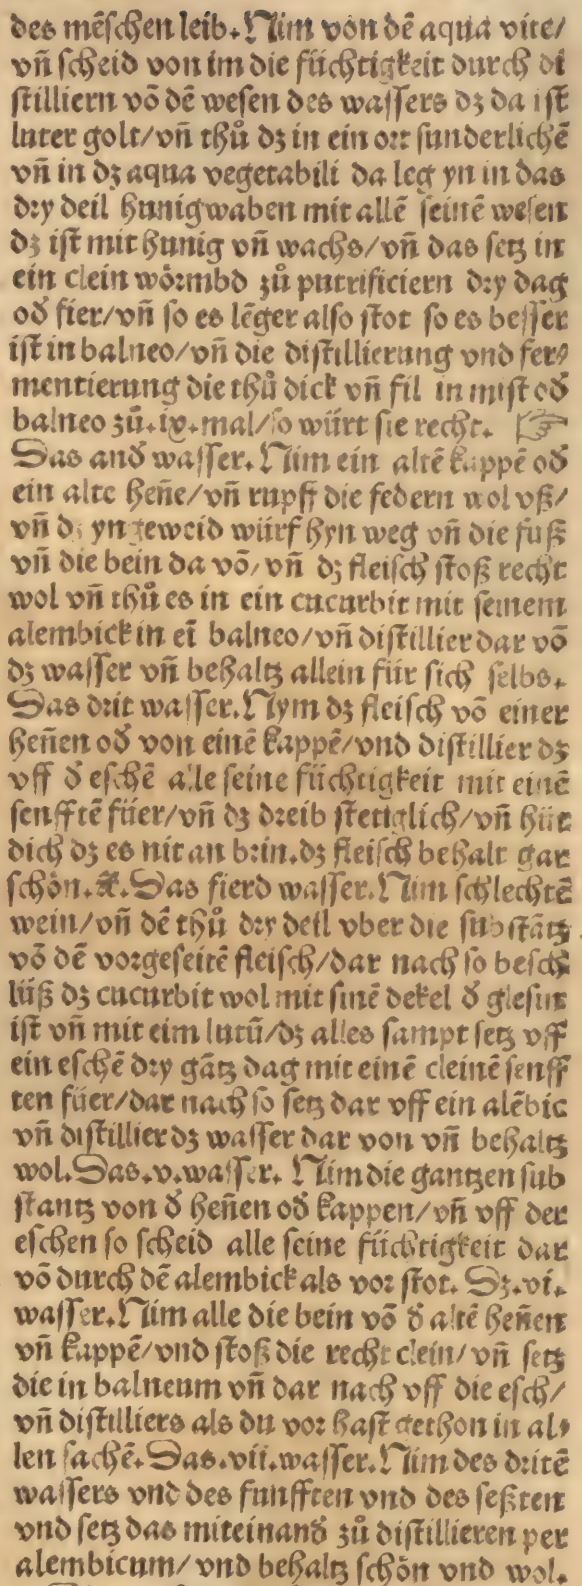 des mēschen leib. Nim von dē aqua vite/
vn̄ scheid von im die füchtigkeit durch di
stilliern vō dē wesen des wassers dz da ist
luter golt/vn̄ thů dz in ein ort sunderlichē
vn̄ in dz aqua vegetabili da leg yn in das
dry deil hunigwaben mit allē seinē wesen
dz ist mit hunig vn̄ wachs/vn̄ das setz in
ein clein wörmbd zů putrificiern dry dag
od̄ fier/vn̄ so es lēger also stot so es besser
ist in balneo/vn̄ die distillierung vnd fer⸗
mentierung die thů dick vn̄ fil in mist od̄
balneo zů.ix.mal/so würt sie recht. ☞
Das and̄ wasser. Nim ein altē kappē od̄
ein alte heñe/vn̄ rupff die federn wol vß/
vn̄ dz yngeweid würf hyn weg vn̄ die fuß
vn̄ die bein da vō/vn̄ dz fleisch stoß recht
wol vn̄ thů es in ein cucurbit mit seinem
alembick in eī balneo/vn̄ distillier dar vō
dz wasser vn̄ behaltz allein für sich selbs.
Das drit wasser. Nym dz fleisch vō einer
heñen od̄ von einē kappē/vnd distillier dz
vff d̄ eschē alle seine füchtigkeit mit einē
senfftē füer/vn̄ dz dreib stetiglich/vn̄ hüt
dich dz es nit an brin.dz fleisch behalt gar
schön.⁊c.Das fierd wasser. Nim schlechtē
wein/vn̄ dē thů dry deil vber die substātz
vō dē vorgeseitē fleisch/dar nach so besch
lüß dz cucurbit wol mit sinē dekel d̄ glesin
ist vn̄ mit eim lutū/dz alles sampt setz vff
ein eschē dry gātz dag mit einē cleinē senff
ten füer/dar nach so setz dar vff ein alēbic
vn̄ distillier dz wasser dar von vn̄ behaltz
wol.Das.v.wasser. Nim die gantzen sub
stantz von d̄ heñen od̄ kappen/vn̄ vff der
eschen so scheid alle seine füchtigkeit dar
vō durch dē alembick als vor stot. Dz.vi.
wasser. Nim alle die bein vō d̄ altē heñen
vn̄ kappē/vnd stoß die recht clein/vn̄ setz
die in balneum vn̄ dar nach vff die esch/
vn̄ distilliers als du vor hast gethon in al⸗
len sachē.Das.vii.wasser. Nim des dritē
wassers vnd des funfften vnd des seßten
vnd setz das miteinand̄ zů distillieren per
alembicum/vnd behaltz schön vnd wol.